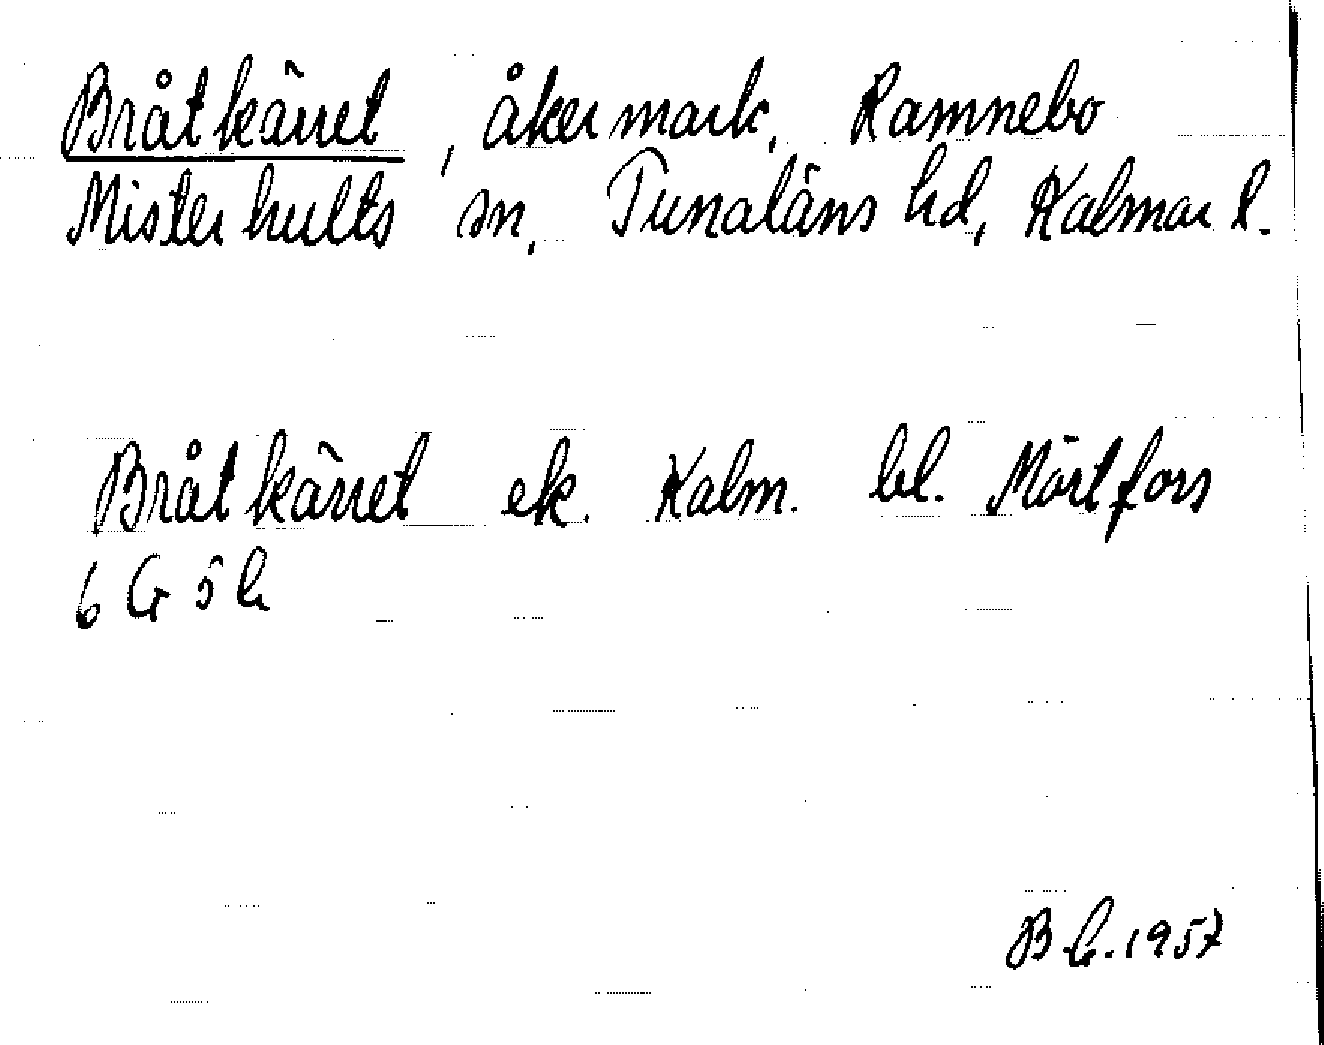 Bråtkärret, åkermark, Ramnebo
Misterhults sn, Tunaläns hd, Kalmar l.
Bråtkärret ek. Kalm. bl. Mörtfors
6 G 5 h
B 1957